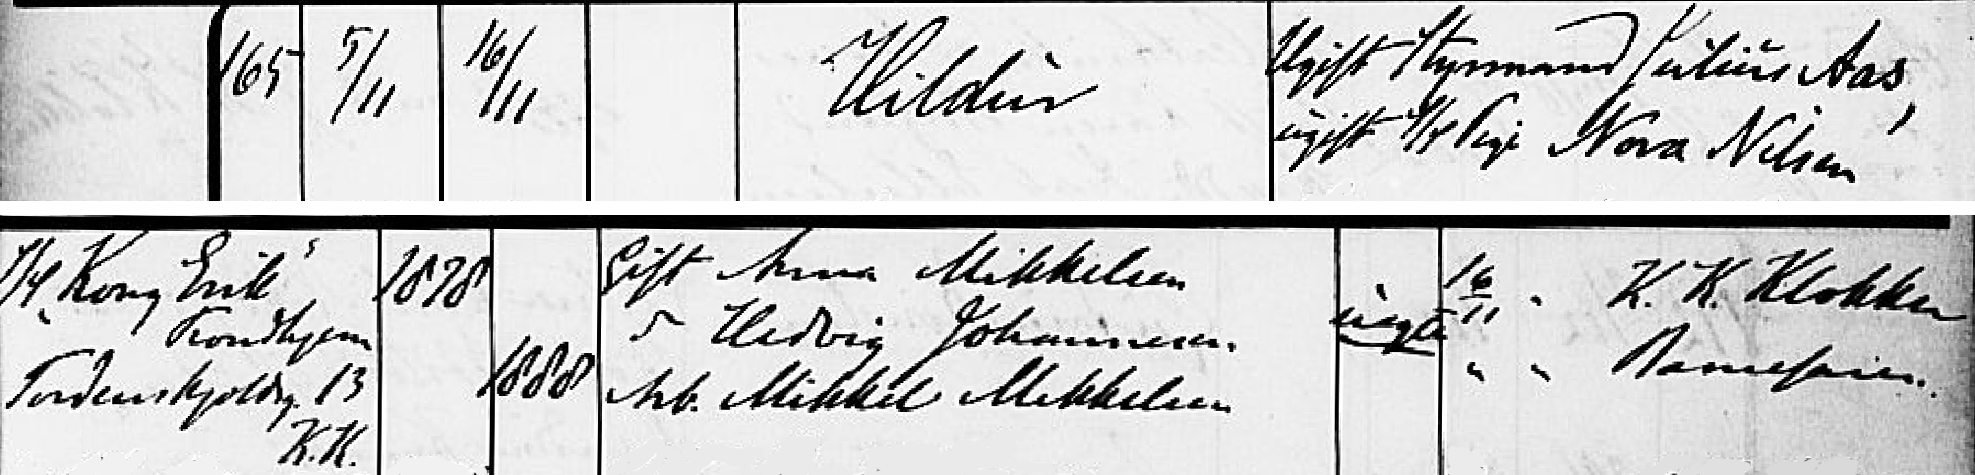 165 5/11 16/11 Hildur Ugift Styrmand Julius Aas,
ugift Pige Nora Nilsen
"Kong Erik" 1878 Gift Anna Mikkelsen uægte 16/11 " K. K. Klokker
Trondhjem d Hedvig Johannesen. " "
Tordenskjoldsg. 13 1888 Arb. Mikkel Mikkelsen
K.K.